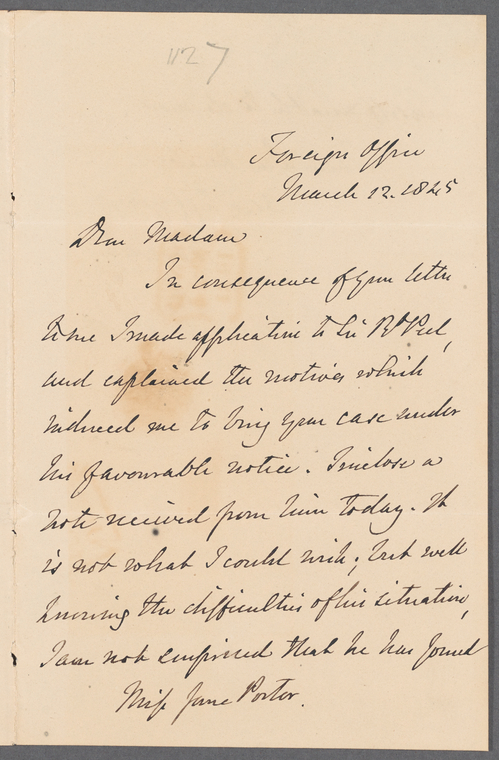 1127
Foreign Office
March 12. 1845
Dear Madam
In consequence of your letter
to me I made application to Sir Rt Peel,
and explained the motives which
induced me to bring your case under
his favourable notice. I inclose a
note received from him today. It
is not what I could wish; but well
knowing the difficulties of his situation,
I am not surprised that he has found
Miss Jane Porter.